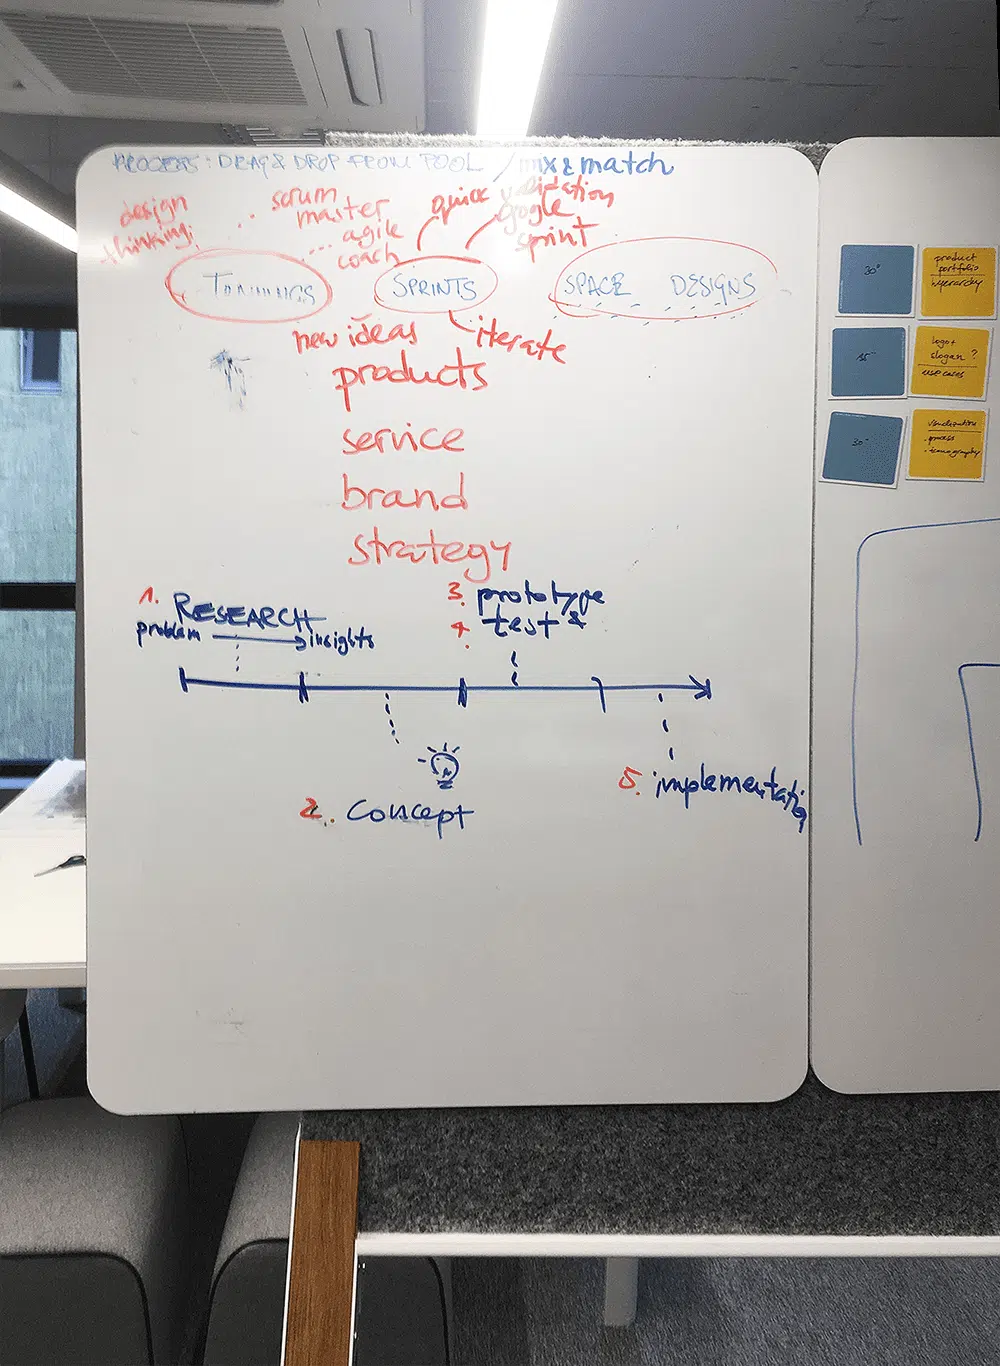 PROCESS: DRAG & DROP FROM POOL / mix & match
design
thinking
scrum
master
agile
coach
quick validation
google
sprint
TRAININGS
SPRINTS
SPACE DESIGNS
new ideas
iterate
products
service
brand
strategy
1. RESEARCH
problem → insights
3. prototype
4. test &
2. concept
5. implementation
30"
product
portfolio
hyerarchy
15"
logo +
slogan ?
use cases
30"
visualization
. process